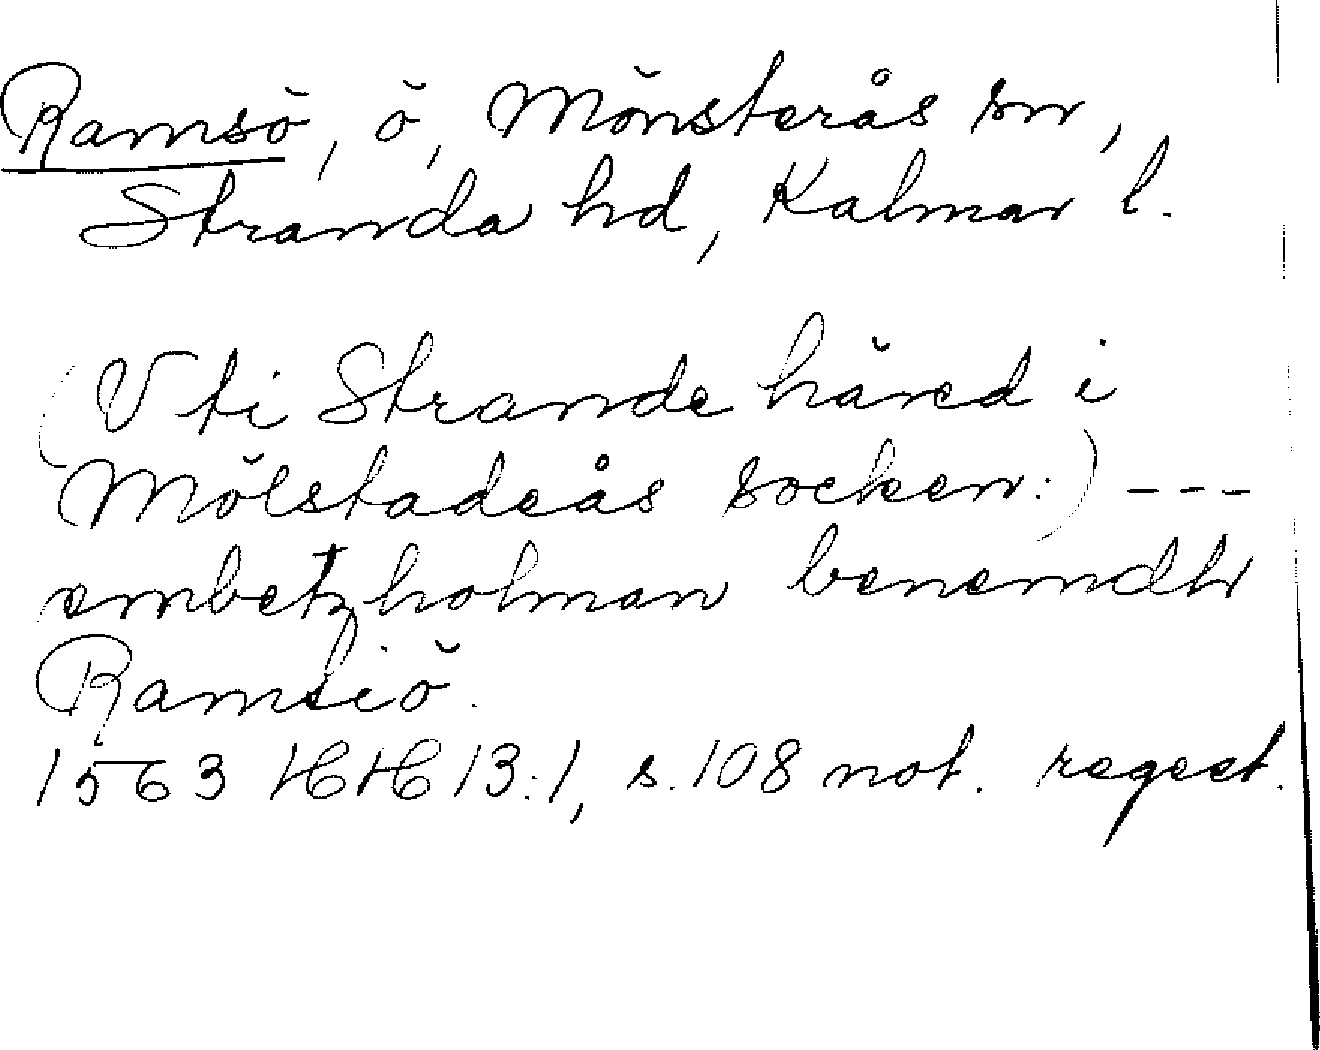 Ramsö, ö, Mönsterås sn,
Stranda hd, Kalmar l.
(Vti Strande häred i
Mölstadeås socken:) ---
embetzholman benemdh
Ramsiö.
1563 HH 13:1, s. 108 not. regest.